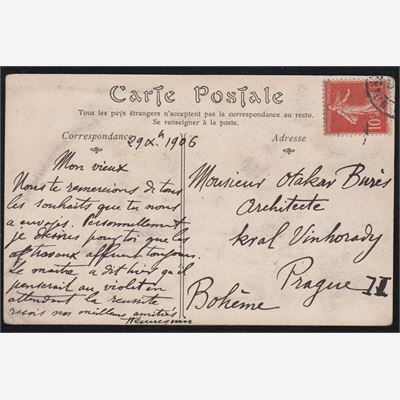 Carte Postale
Tous les pays étrangers n'acceptent pas la correspondance au recto.
Se renseigner à la poste.
Correspondance
Adresse
29 Xb 1906
Mon vieux
Nous te remercions de tous
les souhaits que tu nous
a envoyés. Personnellement
je désires pour toi que les
travaux affluent toujours.
Le maître a dit hier qu'il
penserait au violet en
attendant la réussite
reçois nos meilleurs amitiés
Monsieur Otakar Bureš
Architecte
kral Vinhorady
Prague II
Bohême
10